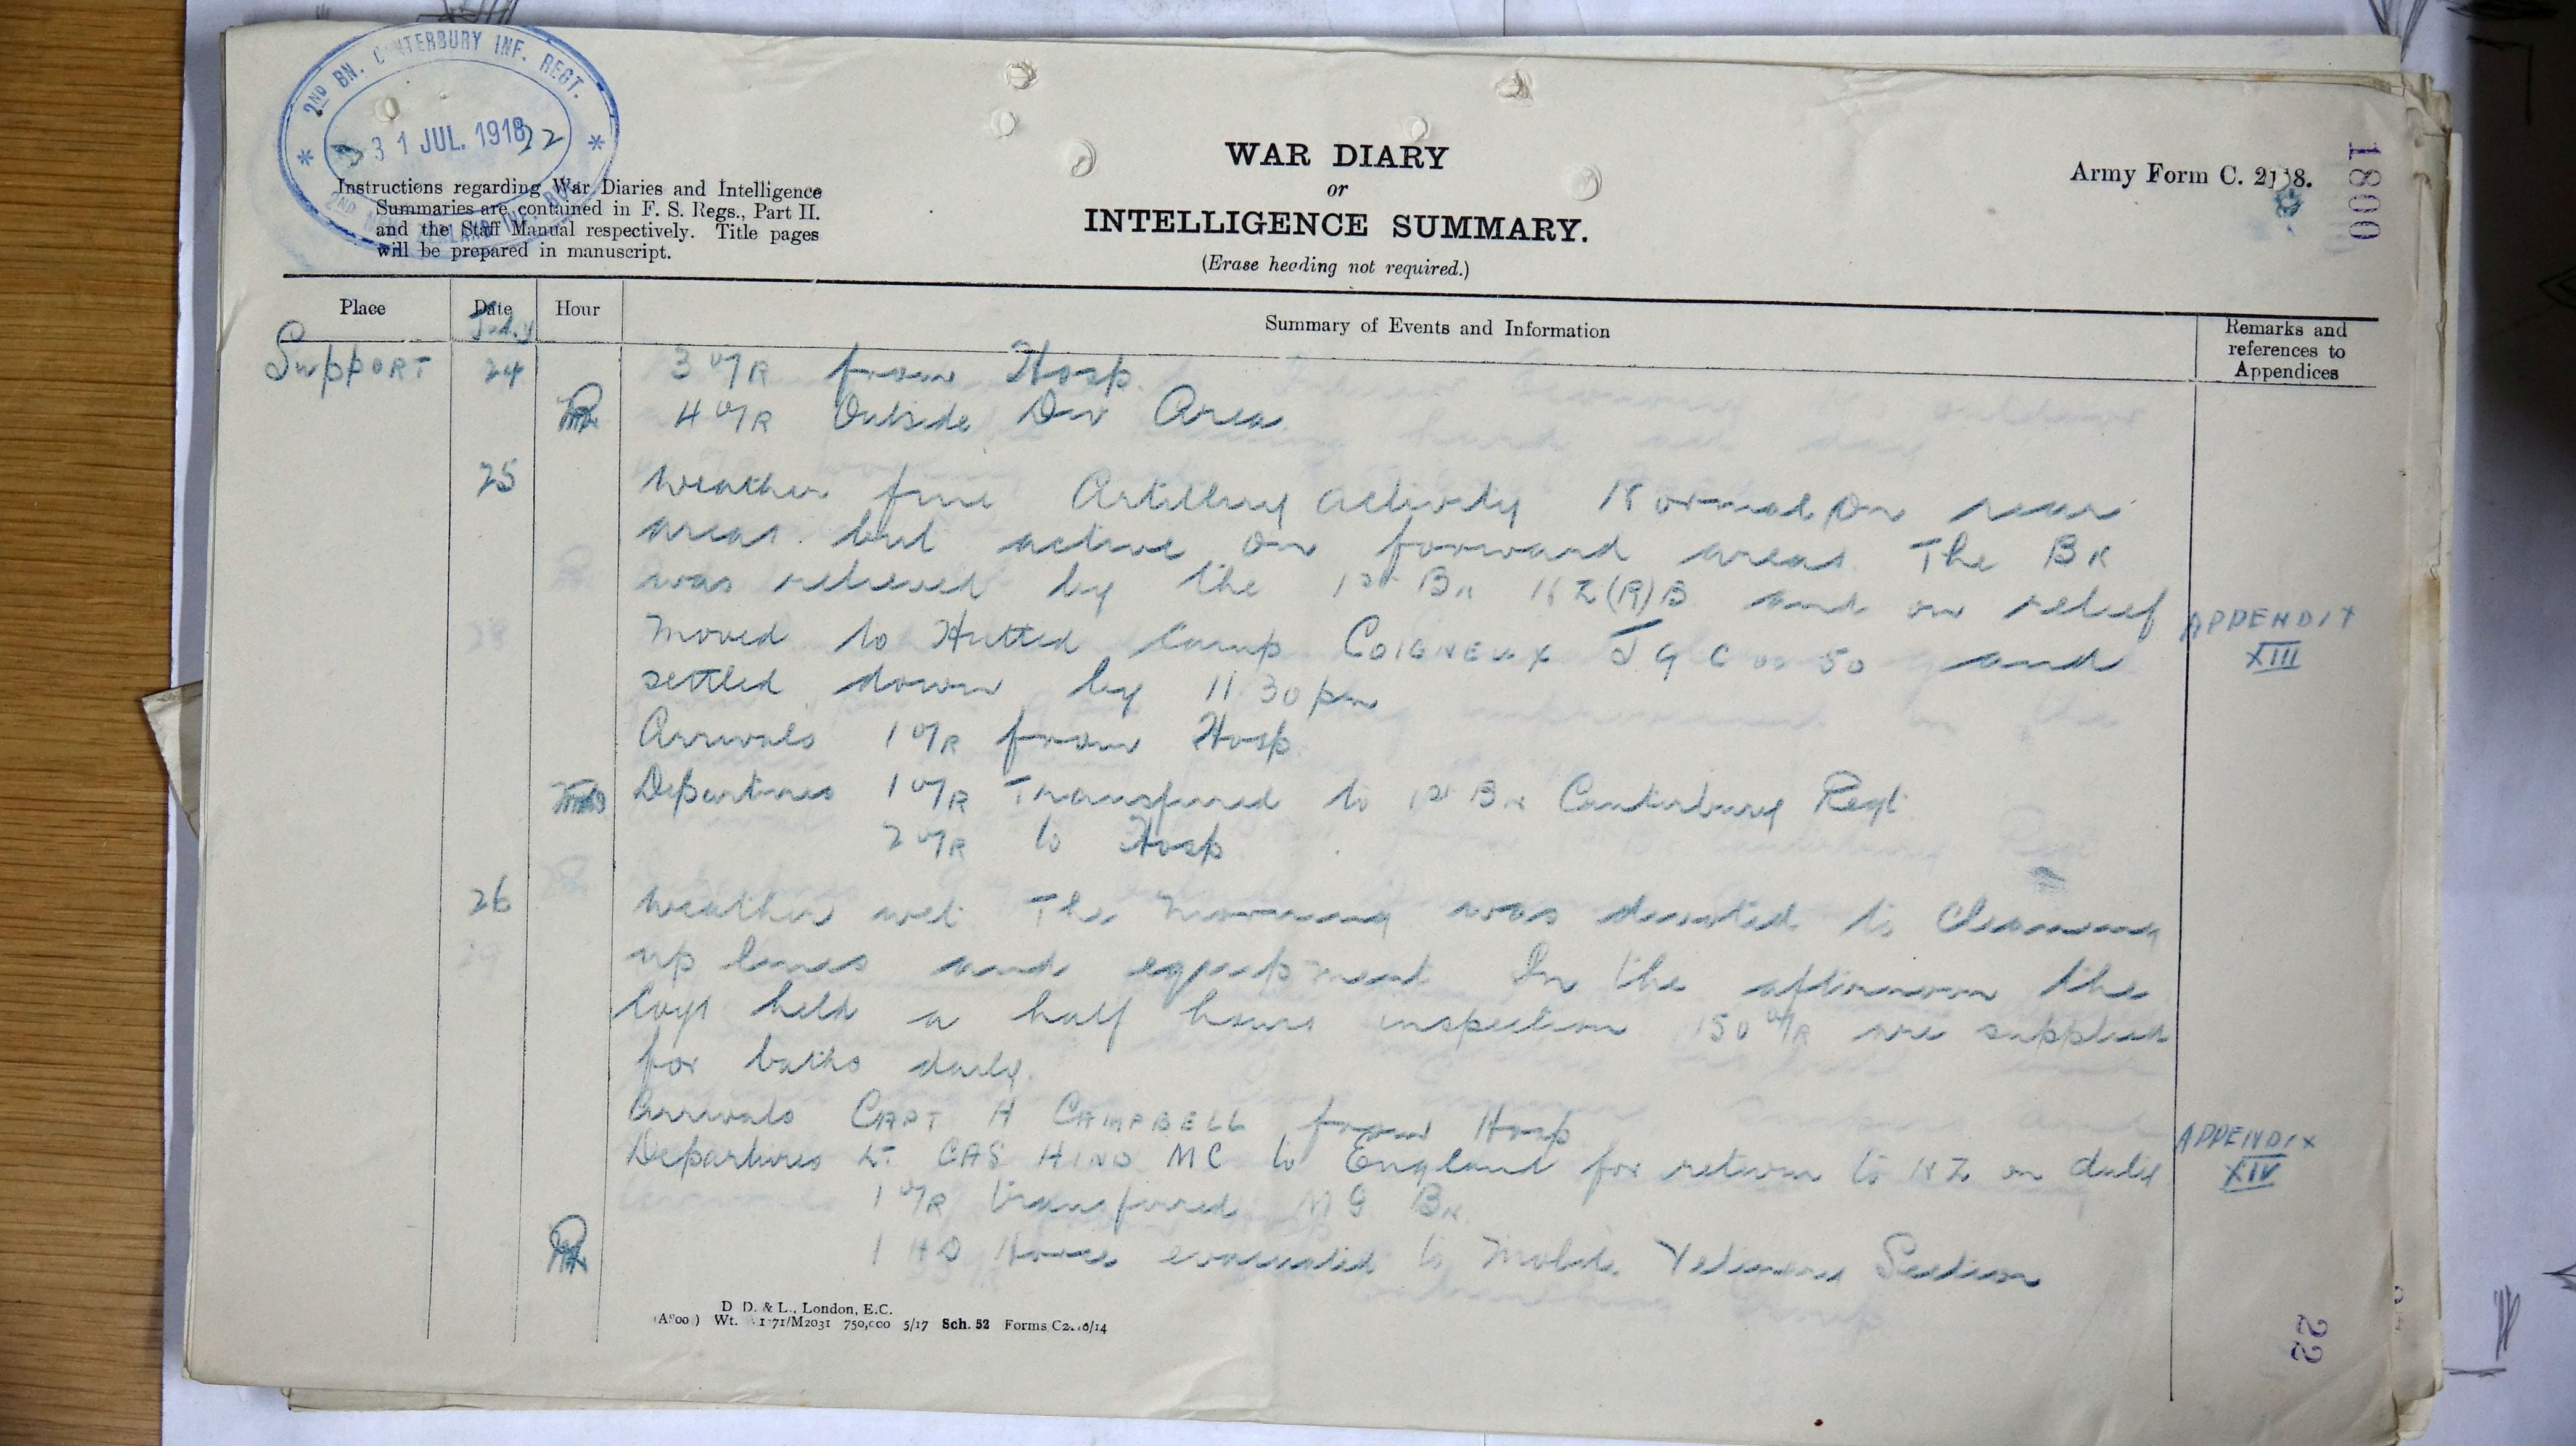 2ND BN. CANTERBURY INF. REGT.
31 JUL. 1918
Instructions regarding War Diaries and Intelligence
Summaries are contained in F. S. Regs., Part II.
and the Staff Manual respectively. Title pages
will be prepared in manuscript.
WAR DIARY
or
INTELLIGENCE SUMMARY.
(Erase heading not required.)
Army Form C. 2118.
1800
Place
Date
Hour
Summary of Events and Information
Remarks and
references to
Appendices
July
Support 24 3 O/R from Hosp.
4 O/R Outside Div Area
25 Weather fine Artillery activity Normal on rear
areas but active on forward areas The BN
was relieved by the 1st BN NZ(R)B and on relief
moved to Hutted Camp COIGNEUX J 9 C 00 50 and
APPENDIX
XIII
settled down by 11 30 pm
Arrivals 1 O/R from Hosp.
Departures 1 O/R Transfured to 1st BN Canterbury Regt
2 O/R to Hosp
26 Weather wet The Morning was devoted to Cleaning
up lines and equipment In the afternoon the
Coys held a half hours inspection 150 O/R are supplied
for baths daily.
Arrivals CAPT H CAMPBELL from Hosp
Departures Lt CAS HIND MC to England for return to NZ on duty
APPENDIX
XIV
1 O/R transfured MG BN
1 HD Horse evacuated to Mobile Veterinary Section
D. D. & L., London, E.C.
Wt. 750,000 5/17 Sch. 52 Forms
22